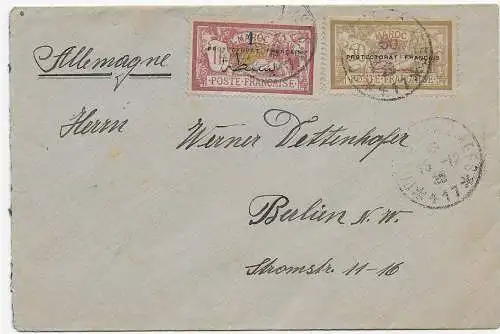 MAROC
PROTECTORAT FRANÇAIS
POSTE FRANÇAISE
MAROC
50
PROTECTORAT FRANÇAIS
POSTE FRANÇAISE
Allemagne
Herrn
Werner Dettenhofer
Berlien N.W.
Stromstr. 11-16
* 417 *